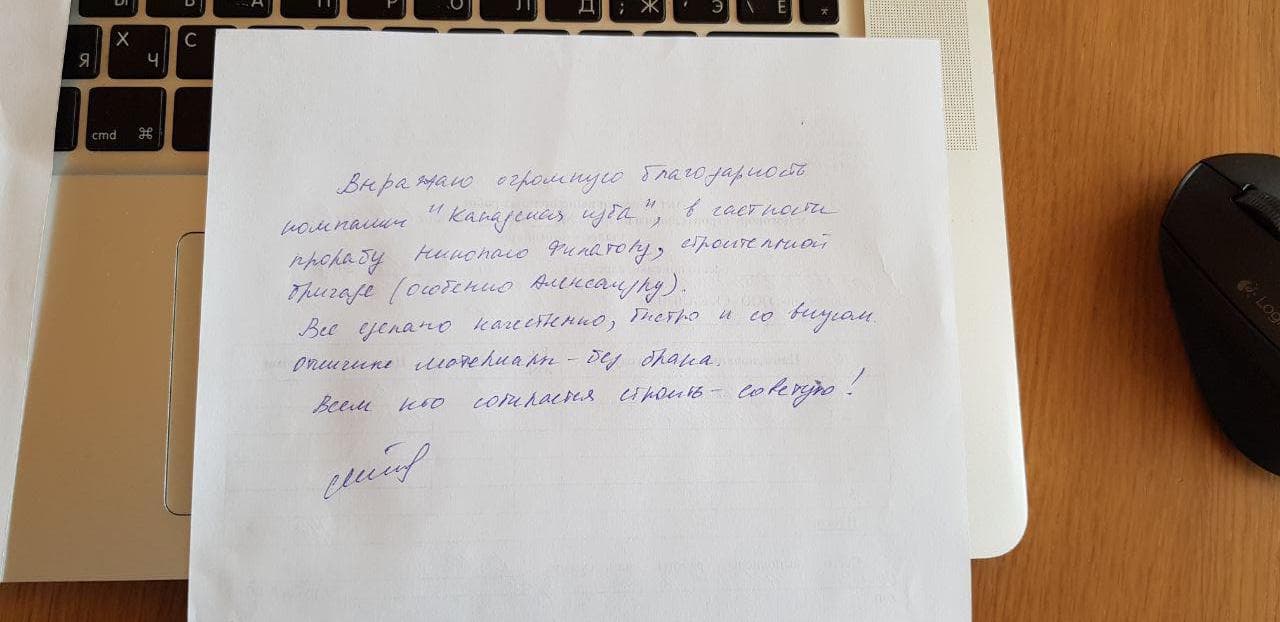 Ы В А П Р О Л Д ; Ж ' Э \ Ё *
Я Х Ч С
cmd ⌘
Выражаю огромную благодарность
компании "Канадская изба", в частности
прорабу Николаю Филатову, строительной
бригаде (особенно Александру).
Все сделано качественно, быстро и со вкусом.
отличные материалы - без брака.
Всем кто собирается строить - советую!
Logi